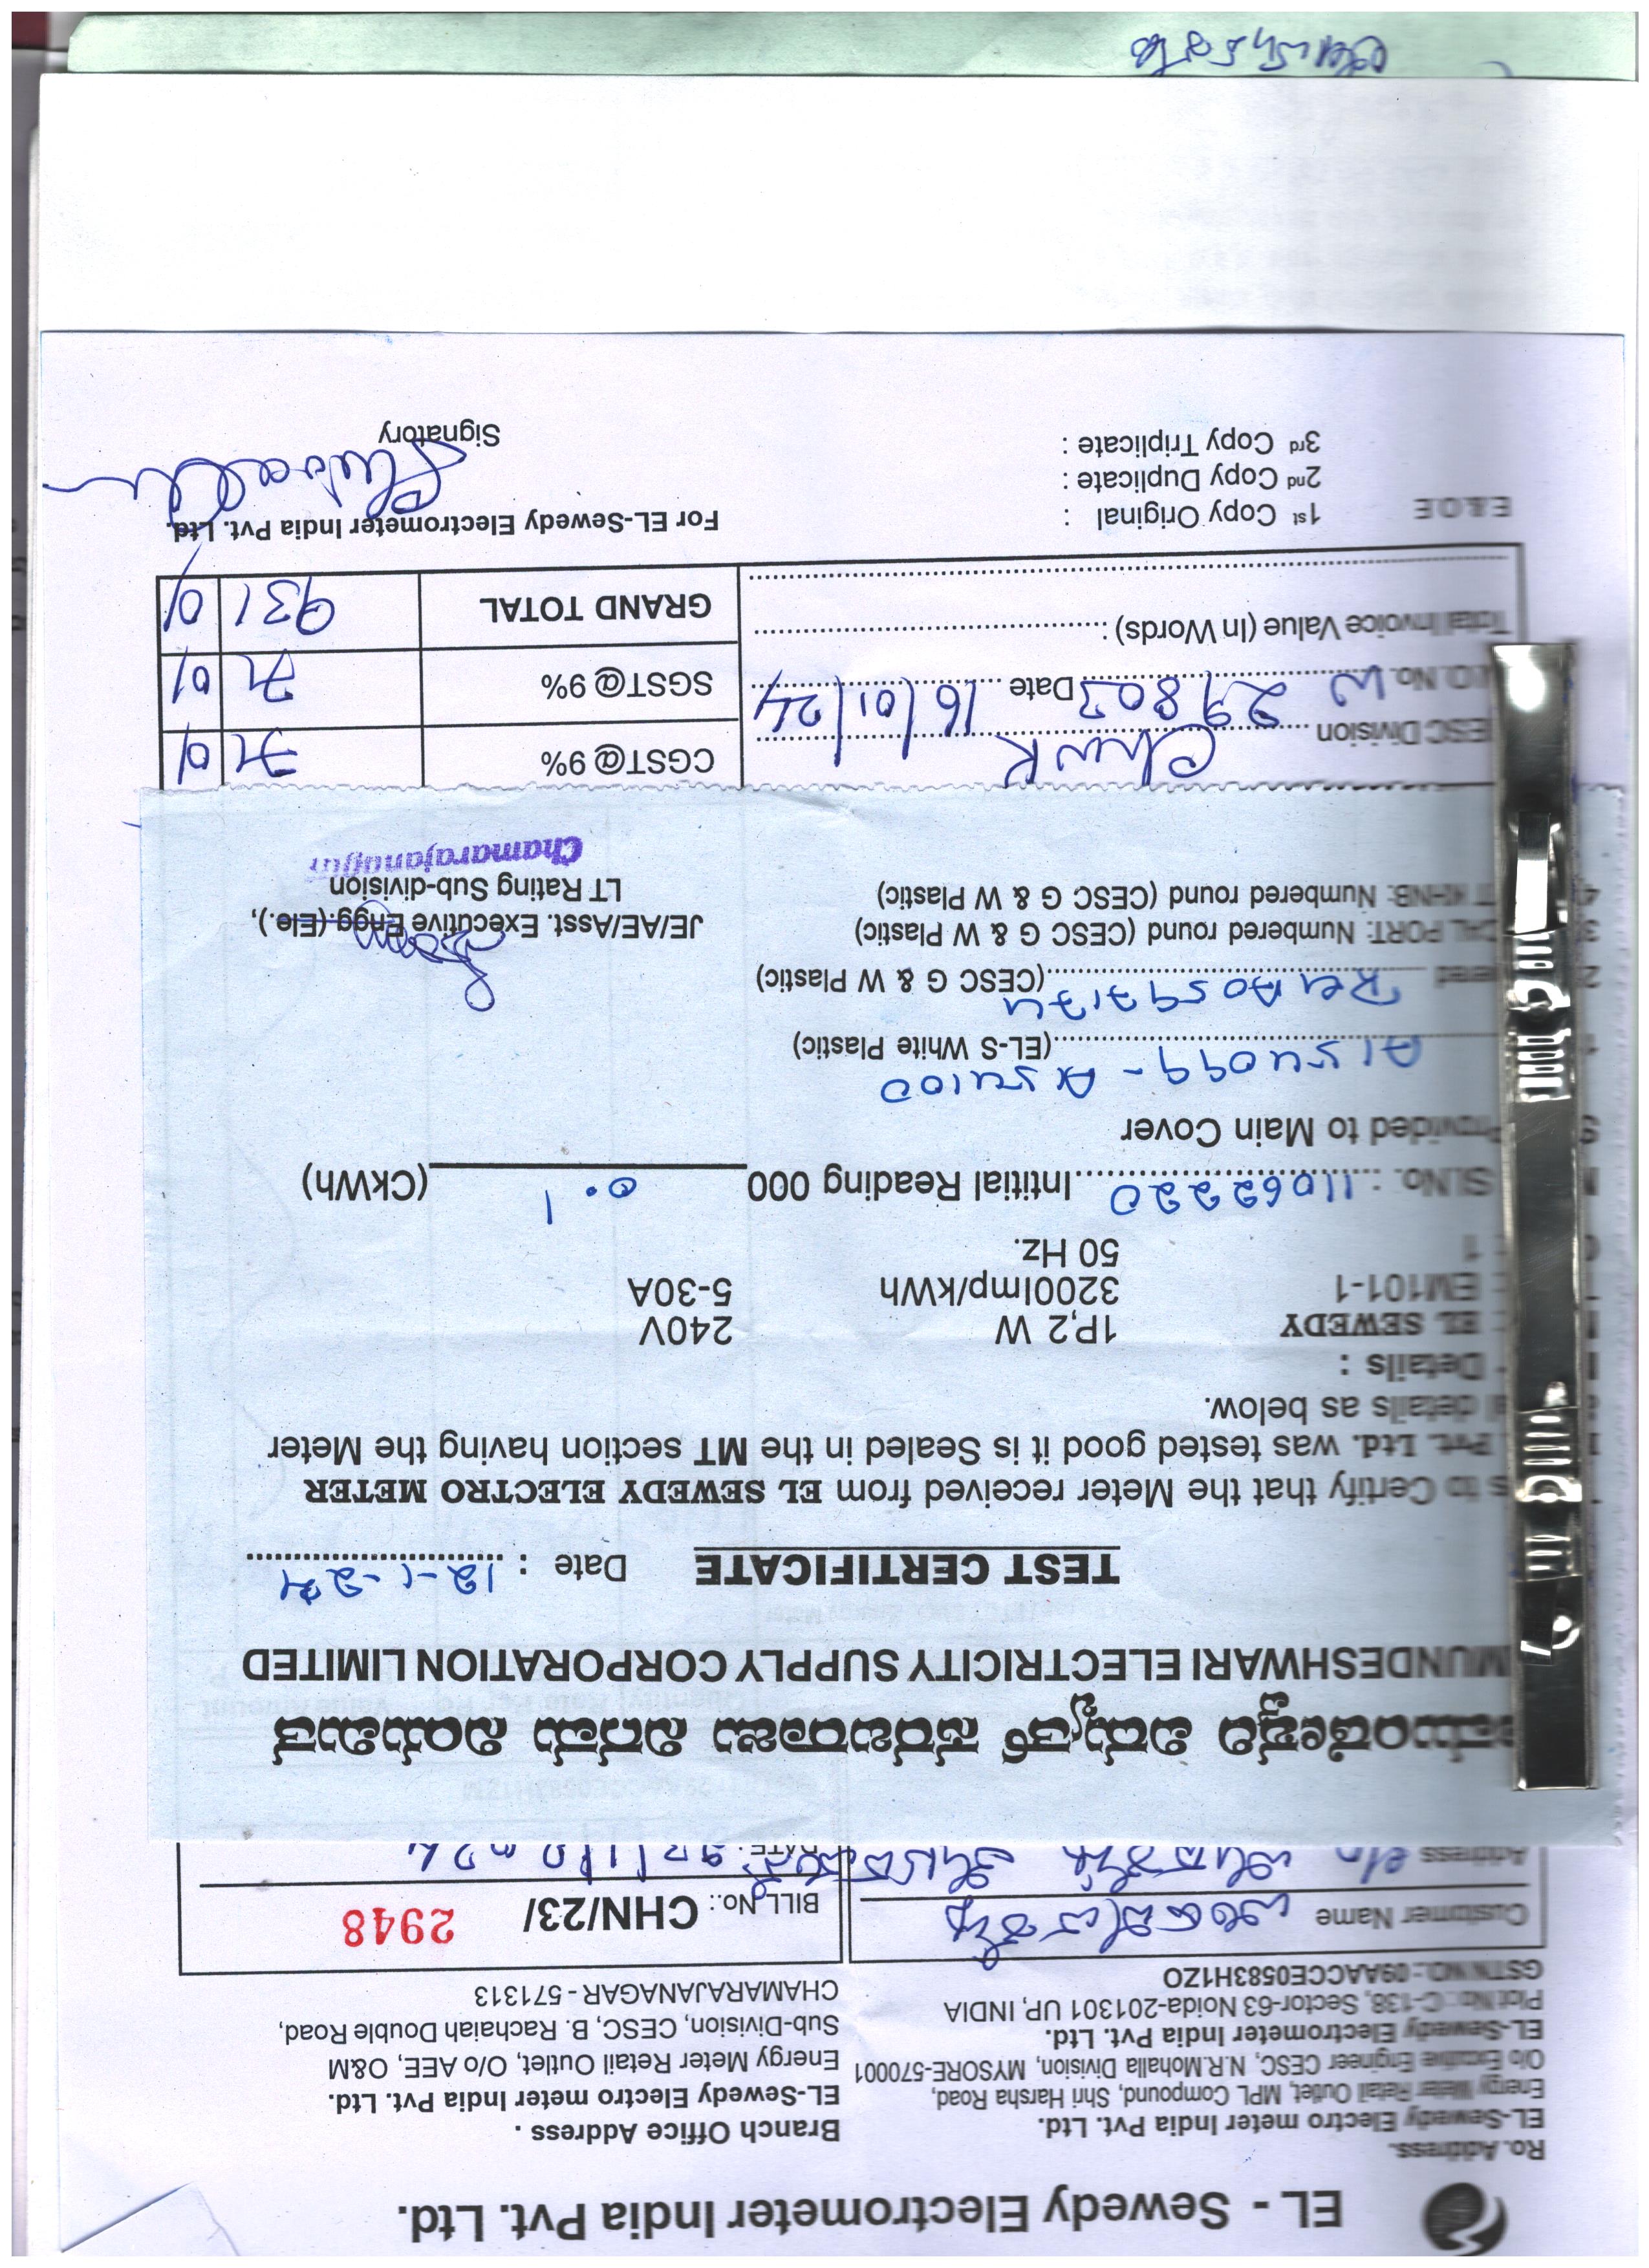 EL - Sewedy Electrometer India Pvt. Ltd.
Ro. Address.
EL-Sewedy Electro meter India Pvt. Ltd.
Energy Meter Retail Outlet, MPL Compound, Shri Harsha Road,
O/o Excutive Engineer CESC, N.R.Mohalla Division, MYSORE-570001
EL-Sewedy Electrometer India Pvt. Ltd.
Plot No : C-138, Sector-63 Noida-201301 UP, INDIA
GSTN NO. : 09AACCE0583H1ZO
Branch Office Address .
EL-Sewedy Electro meter India Pvt. Ltd.
Energy Meter Retail Outlet, O/o AEE, O&M
Sub-Division, CESC, B. Rachaiah Double Road,
CHAMARAJANAGAR - 571313
Customer Name
BILL No.: CHN/23/ 2948
Address
DATE:
ಮುಂಡೇಶ್ವರಿ ವಿದ್ಯುತ್ ಸರಬರಾಜು ನಿಗಮ ನಿಯಮಿತ
MUNDESHWARI ELECTRICITY SUPPLY CORPORATION LIMITED
TEST CERTIFICATE Date : 12-1-24
s to Certify that the Meter received from EL SEWEDY ELECTRO METER
Pvt. Ltd. was tested good it is Sealed in the MT section having the Meter
details as below.
Details :
EL SEWEDY 1P,2 W 240V
EM101-1 3200Imp/kWh 5-30A
1 50 Hz.
Sl.No. : 11062220 Intitial Reading 000 0.1 (CkWh)
Provided to Main Cover
A154099 - A154100 (EL-S White Plastic)
(CESC G & W Plastic)
PORT: Numbered round (CESC G & W Plastic)
Numbered round (CESC G & W Plastic)
JE/AE/Asst. Executive Engg.(Ele.),
LT Rating Sub-division
Chamarajanagar
ESC Division
CGST@ 9% 71 01
No. 29803 Date 16/01/24
SGST@ 9% 71 01
Total Invoice Value (In Words) :
GRAND TOTAL 931 01
E & O E
1st Copy Original :
2nd Copy Duplicate :
3rd Copy Triplicate :
For EL-Sewedy Electrometer India Pvt. Ltd.
Signatory